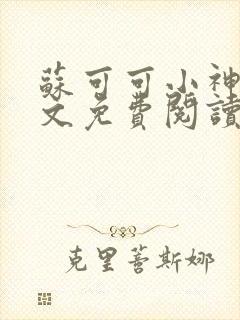 蘇可可小神
文免費閱讀
克里蒈斯娜